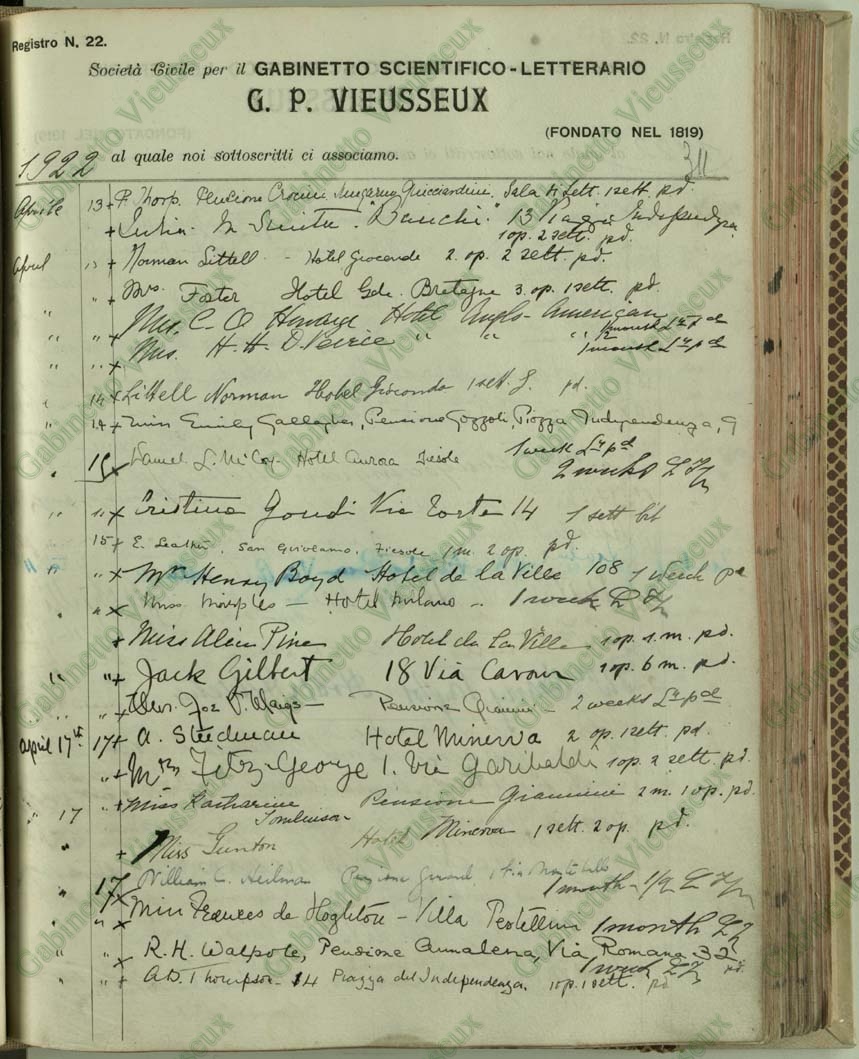 Registro N. 22.
Società Civile per il GABINETTO SCIENTIFICO-LETTERARIO
G. P. VIEUSSEUX
(FONDATO NEL 1819)
1922 al quale noi sottoscritti ci associamo. 311
Aprile 13 + P. Thorp. Pensione Crocini Lungarno Guicciardini. Sala 4 Sett. 1 sett. pd.
+ "Bianchi" 13 Piazza Independenza
1 op. 2 sett. pd.
April " + Norman Littell - Hotel Gioconda 2. op. 2 sett. pd.
" + Mrs. Foster Hotel Gde. Bretagne 3. op. 1 sett. pd.
" " + Mrs. C. O. Hotel Anglo-American
1 month pd
" " + Mrs. H. H. D. Peirce " " "
1 month pd
" " +
" 14 + Littell Norman Hotel Gioconda 1 sett. pd.
" 14 + Miss Emily Gallagher, Pensione Gozzoli, Piazza Independenza, 9
1 week pd
15 + Daniel L. McCoy - Hotel Aurora Fiesole
2 weeks
" " + Cristina Via Torta 14 1 sett
15 + E. Leather, San Girolamo. Fiesole 1 m. 2 op. pd.
" " + Mr Henry Boyd Hotel de la Ville 108 1 week pd
" " + Miss - Hotel Milano - 1 week
+ Miss Pine Hotel de la Ville 1 op. 1. m. pd.
" " + Jack Gilbert 18 Via Cavour 1 op. 6 m. pd.
" " + Joe Pensione Giannini - 2 weeks pd
April 17th 17 + A. Steedman Hotel Minerva 2 op. 1 sett. pd.
" + Mrs Fitz-George 1. Via Garibaldi 1 op. 2 sett. pd.
" 17 " + Miss Katharine Tomlinson Pensione Giannini 2 m. 1 op. pd.
" + Miss Gunton Hotel Minerva 1 sett. 2 op. pd.
" 17 + William C. Heilman Pensione Girard 1 Via Montebello
1 month - 1/2
" " + Miss Frances de Hoghton - Villa Pestellini 1 month
" " + R. H. Walpole, Pensione Annalena, Via Romana 32
1 week pd.
" " + A.D. Thompson - 14 Piazza del Independenza. 1 op. 1 sett. pd
Gabinetto Vieusseux